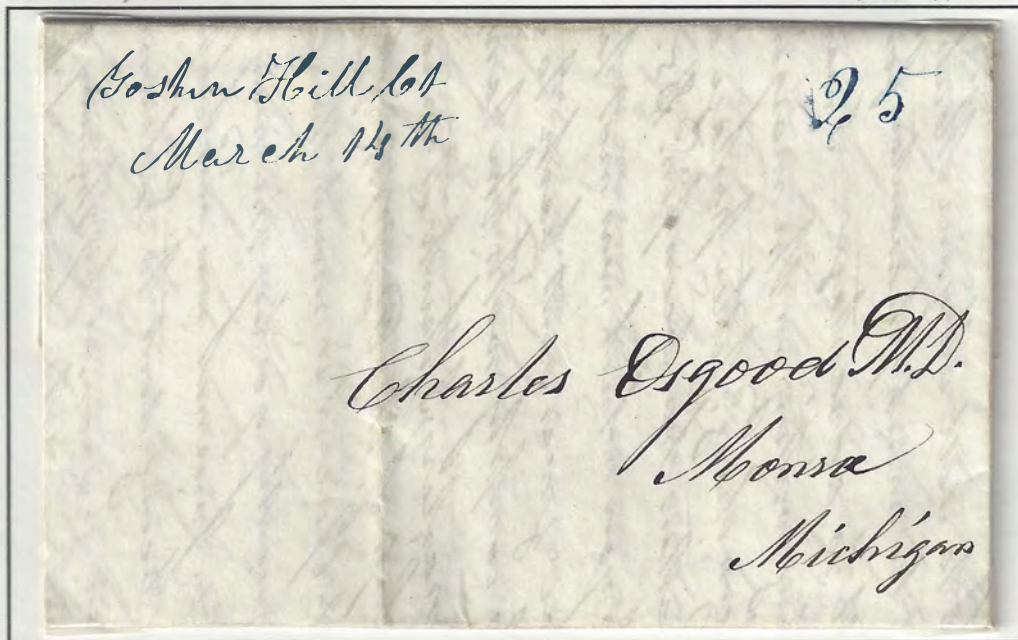 Goshen Hill Ct
March 14th
25
Charles Osgood M.D.
Monroe
Michigan